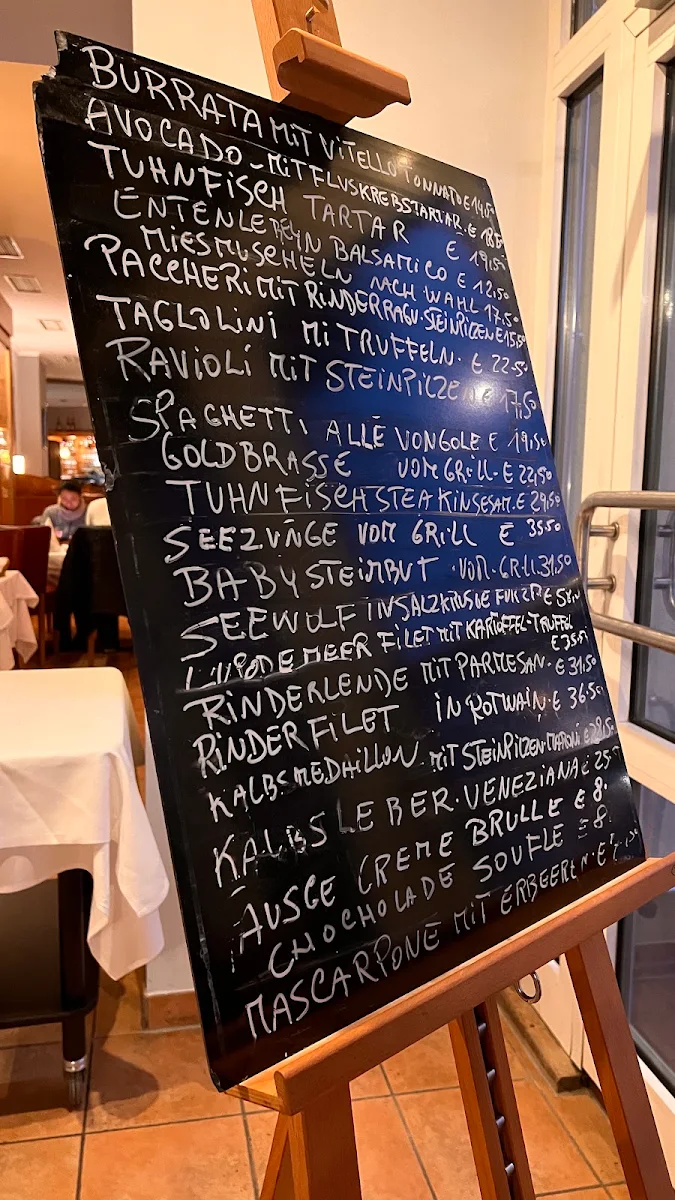 BURRATA MIT VITELLO TONNATO €
AVOCADO - MIT FLUSKREBSTARTAR. €
TUHNFISCH TARTAR € 19,50
ENTENLEBER IN BALSAMICO € 12,50
MIESMUSCHELN NACH WAHL 17,50
PACCHERI MIT RINDERRAGU. STEINPILZEN € 15,50
TAGLOLINI MI TRUFFELN. € 22,50
RAVIOLI MIT STEINPILZE 17,50
SPAGHETTI ALLE VONGOLE € 19,50
GOLDBRASSE VOM GRILL - € 22,50
TUHNFISCHSTEAK IN SESAM. € 29,50
SEEZUNGE VOM GRILL € 35.50
BABY STEINBUT VOM. GRILL 31,50
SEEWOLF IN SALZKRUSTE FÜR 2P €
LOUP DE MEER FILET MIT KARTOFFEL-TRUFFEL
€ 35.50
RINDERLENDE MIT PARMESAN. € 31,50
RINDERFILET IN ROTWAIN. € 36.50
KALBSMEDAILLON MIT STEINPILZEN. MARONI €
KALBSLEBER. VENEZIANA €
HAUSGE CREME BRULLE € 8.
CHOCHOLADE SOUFLE € 8.
MASCARPONE MIT ERBEEREN. €